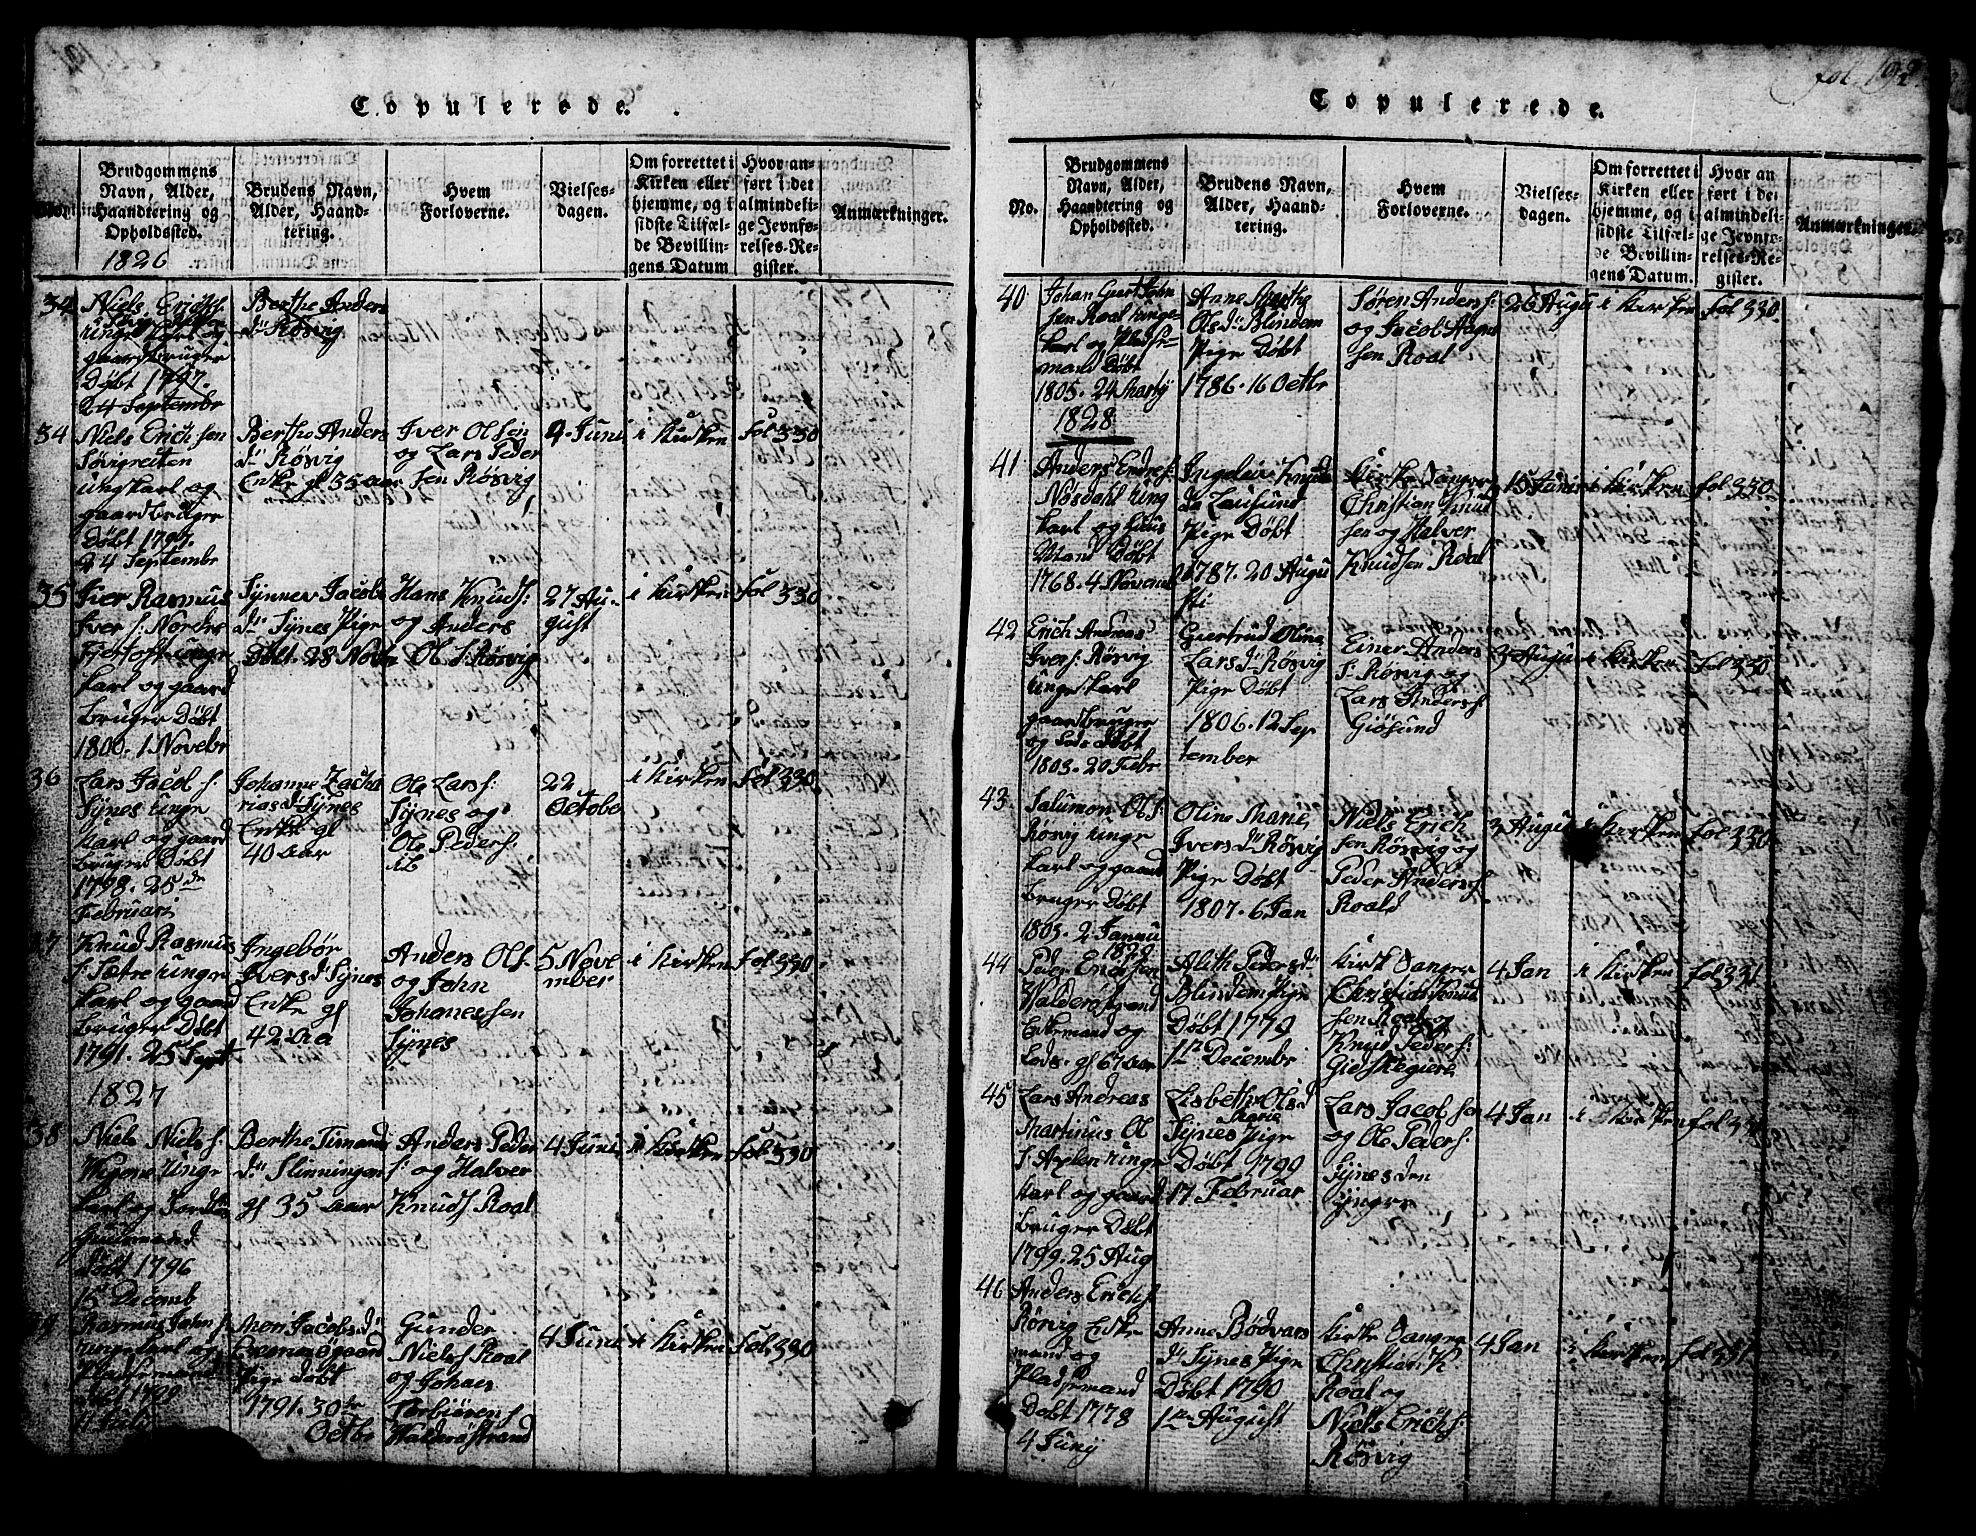 Copulerede.
Brudgommens
Navn, Alder,
Haandtering og
Opholdssted.
1826
Brudens Navn,
Alder, Haand-
tering.
Hvem
Forloverne.
Vielses-
dagen.
Om forrettet i
Kirken eller
hjemme, og i
sidste Tilfæl-
de Bevillin-
gens Datum
Hvor an-
ført i det
almindeli-
ge Jevnfø-
relses-Re-
gister.
Anmærkninger.
34
Niels
Ungkarl og
gaardbruger
Døbt 1797.
24 Septembr
Berthe Anders
Dr Røsvig
34
Niels Erichsen
Søvigreiten
ungkarl og
gaardbruger
Døbt 1797.
24 Septembr
Berthe Anders
Dr Røsvig
Enke gl 35 aar
Iver Olsen
og Lars Peder
sen Røsvig
4 Juni
i Kirken
fol 330
35
Iver Rasmus
Iver s: Nordre
Fjertoft unge
karl og gaard
bruger Døbt
1800. 1 Novebr
Synnev Jacobs
Dr Synes Pige
Døbt. 28 Novbr
Hans Knuds:
og Anders
Ol s: Røsvig
27 Au-
gust
i Kirken
fol 330
36
Lars Jacob s:
Synes unge
karl og gaard
bruger Døbt
1798. 25de
Februari
Johanne Zacha
rias Dr Synes
Enke gl
40 aar
Ole Lars:
Synes og
Ole Peders:
ib
22
October
i Kirken
fol 330
37
Knud Rasmus
s: Sætre unge
karl og gaard
bruger Døbt
1791. 25 Sept
Ingebør
Ivers Dr Synes
Enke gl
42 aa
Anders Ols:
og John
Johanessen
Synes
5 Nove
mber
i Kirken
fol 330
1827
38
Niels Niels s:
unge
karl og
huusmand
Døbt 1796
15 Decemb
Berthe Simans
Dr Slinningen
gl 35 aar
Anders Peder
s: og Halver
Knuds Roal
4 Juni
i Kirken
fol 330
39
Rasmus John s:
unge karl og
Pladsemand
Døbt 1799
Jacobs Dr
Pige Døbt
1791. 30te
Octbr
Gunder
Niels s Roal
og Johan
Torbiørens
Walderøstrand
4 Juni
i Kirken
fol 330
fol 192
Copulerede.
No.
Brudgommens
Navn, Alder,
Haandtering og
Opholdssted.
Brudens Navn,
Alder, Haand-
tering.
Hvem
Forloverne.
Vielses-
dagen.
Om forrettet i
Kirken eller
hjemme, og i
sidste Tilfæl-
de Bevillin-
gens Datum.
Hvor an
ført i det
almindeli-
ge Jevnfø-
relses-Re-
gister.
Anmærkninger.
40
Johan Giert John
sen Roal unge-
karl og Pladse-
mand Døbt
1805. 24 Martij
Anne Marthe
Ols Dr Blindem
Pige Døbt
1786. 16 Octbr
Søren Anders s:
og Jacob Aagen
sen Roal
26 Augu
i Kirken
fol 330.
1828
41
Anders Endres:
Nøsdahl ung
karl og huus
Mand Døbt
1768. 4 Novemb
Ingeleiv Knuds
Dr Lausund
Pige Døbt
1787. 20 Augu
sti
Kirke Sanger
Christian Knud
sen og Halver
Knudsen Roal
15 Juni
i Kirken
fol 330
42
Erich Andreas
Ivers: Røsvig
Ungekarl
gaardbruger
og Døbt
1803. 20 Febr
Giertrud Olina
Lars Dr Røsvig
Pige Døbt
1806. 12 Sep
tember
Einer Anders
s: Røsvig og
Lars Anders s:
Giøsund
3 Augu
i Kirken
fol 330
43
Salumon Ol s:
Røsvig unge
karl og gaard
bruger Døbt
1805. 2 Januu
Oline Marie
Ivers Dr Røsvig
Pige Døbt
1807. 6 Jan
Niels Erich
sen Røsvig og
Peder Anders s:
Roald
3 Augu
i Kirken
fol 330
1829
44
Peder Erichsen
Walderøstrand
Enkemand og
Lods. gl 67 aar
Alith Peders Dr
Blindem Pige
Døbt 1779
1te Decembr
Kirk Sanger
Christian Knud
sen Roal og
Knud Peder s:
Gidskegiere
4 Jan
i Kirken
fol 331
45
Lars Andreas
Martinus Ol
s: Axlen unge
karl og gaard
bruger Døbt
1799. 25 Aug
Lisbeth Ols Dr
Marie
Synes Pige
Døbt 1799
17 Februar
Lars Jacobsen
og Ole Peders:
Synes den
yngere
4 Jan
i Kirken
fol 331
46
Anders Erich s:
Røsvig Enke
mand og
Pladsemand
Døbt 1778
4 Junij
Anne Bødvars
Dr Synes Pige
Døbt 1790
1te August
Kirke Sanger
Christian K
Roal og
Niels Erich s:
Røsvig
4 Jan
i Kirken
fol 331